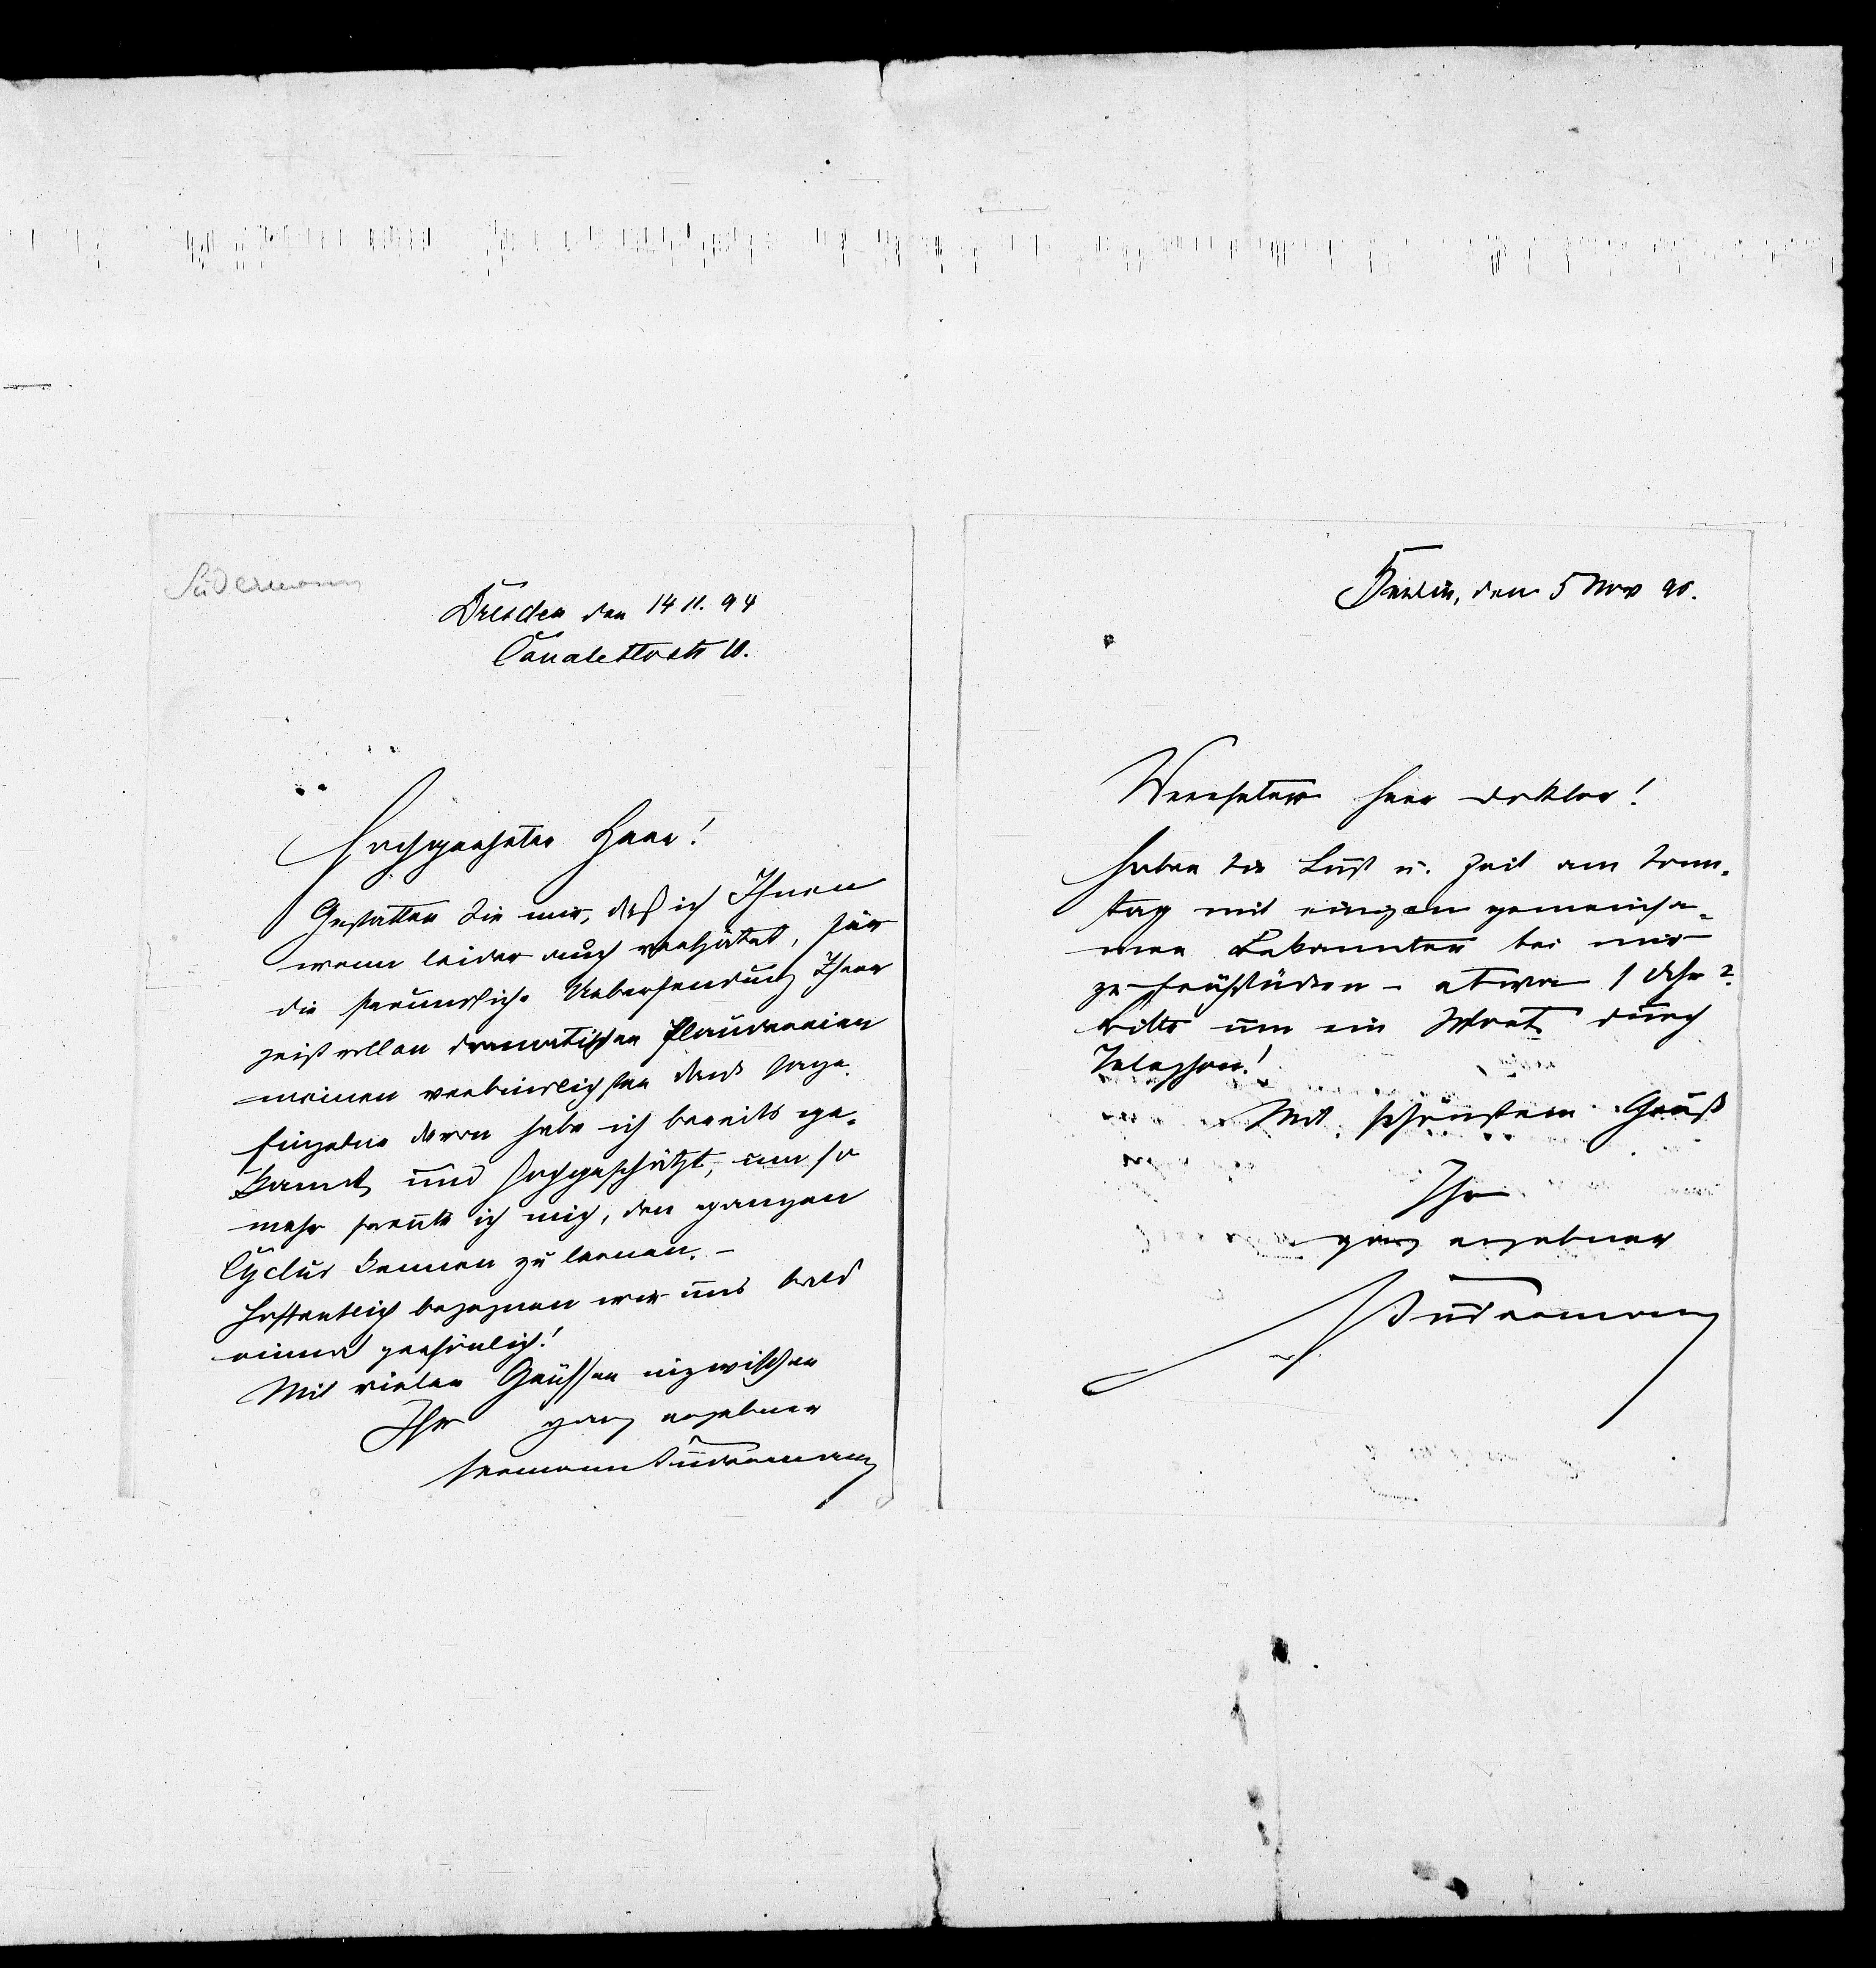 Sudermann
Dresden den 14 11. 94
Canalettostr 10.
Hochgeehrter Herr!
Gestatten Sie mir, daß ich Ihnen
wenn leider auch verspätet, für
die freundliche Uebersendung Ihrer
geistvollen dramatischen Plaudereien
meinen verbindlichsten Dank sage.
Einzelne davon habe ich bereits ge-
kannt und hochgeschätzt, um so
mehr freute ich mich, den ganzen
Cyclus kennen zu lernen. –
Hoffentlich begegnen wir uns bald
einmal persönlich!
Mit vielen Grüssen inzwischen
Ihr ganz ergebner
Hermann Sudermann
Berlin, den 5 Nov 95.
Verehrter Herr Doktor!
Haben Sie Lust u. Zeit am Sonn-
tag mit einigen gemeinsa-
men Bekannten bei mir
zu frühstücken – etwa 1 Uhr?
Bitte um ein Wort durch
Telephon!
Mit schönstem Gruß
Ihr
ganz ergebner
Sudermann